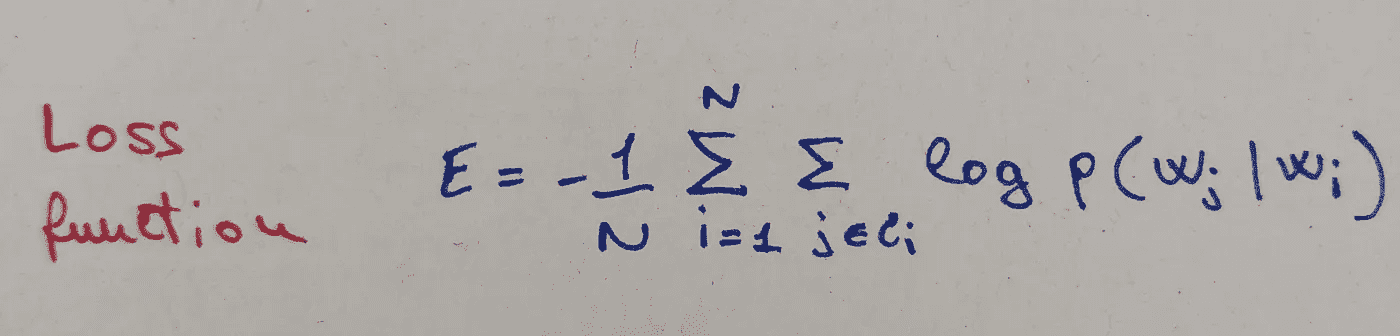 Loss
function
E = -1/N ∑_{i=1}^{N} ∑_{j∈C_i} log p(w_j | w_i)